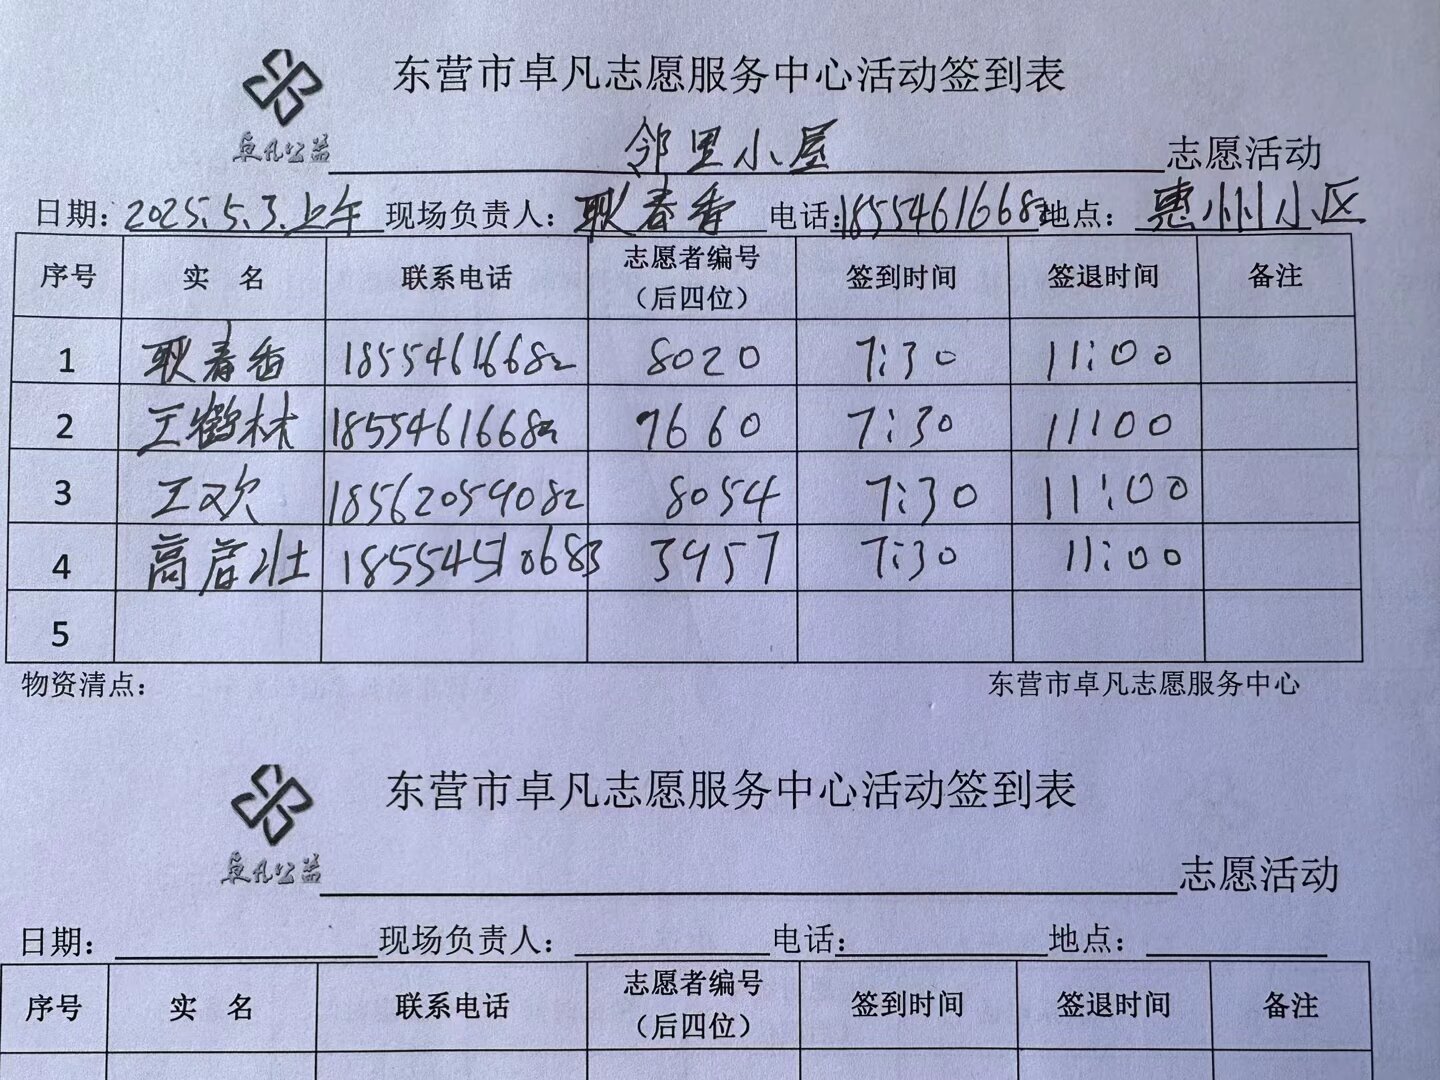 东营市卓凡志愿服务中心活动签到表
卓凡公益 邻里小屋 志愿活动
日期：2025.5.3.上午 现场负责人：耿春香 电话：18554616682 地点：惠州小区
序号 实 名 联系电话 志愿者编号（后四位） 签到时间 签退时间 备注
1 耿春香 18554616682 8020 7:30 11:00
2 王鹤林 18554616682 7660 7:30 11:00
3 王欢 18562059082 8054 7:30 11:00
4 高岩壮 18554510683 3957 7:30 11:00
5
物资清点： 东营市卓凡志愿服务中心
东营市卓凡志愿服务中心活动签到表
卓凡公益 志愿活动
日期： 现场负责人： 电话： 地点：
序号 实 名 联系电话 志愿者编号（后四位） 签到时间 签退时间 备注